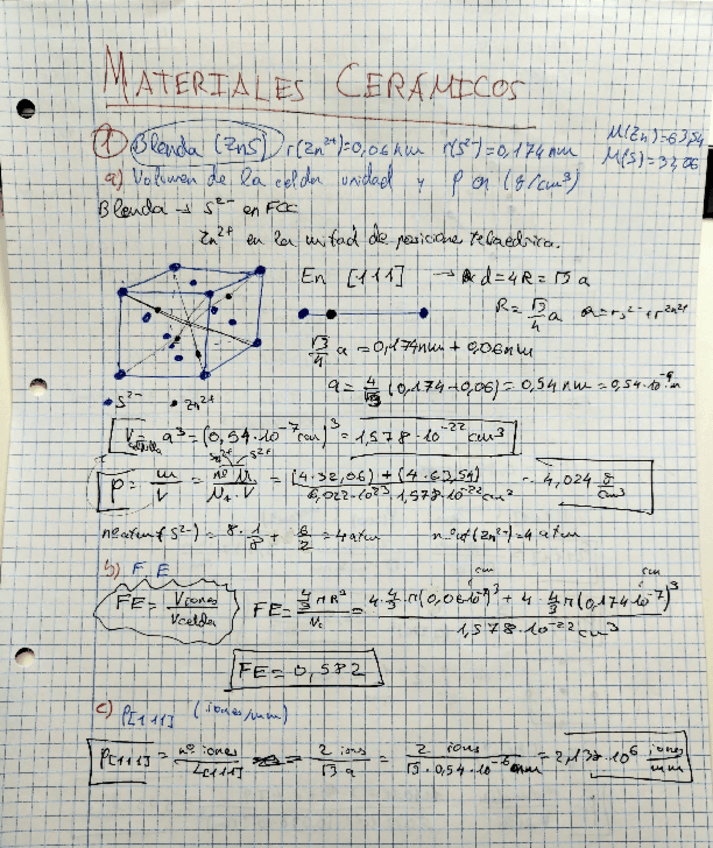 MATERIALES CERÁMICOS
① Blenda (ZnS) r(Zn²⁺)=0,06 nm r(S²⁻)=0,174 nm M(Zn)=63,54
M(S)=32,06
a) Volumen de la celda unidad y ρ en (g/cm³)
Blenda → S²⁻ en FCC
Zn²⁺ en la mitad de posiciones tetraédrica.
En [111] → d=4R=√3 a
R=√3/4 a R=rs²⁻+rZn²⁺
√3/4 a = 0,174nm + 0,06nm
a = 4/√3 (0,174+0,06) = 0,54 nm = 0,54·10⁻⁹m
• S²⁻ • Zn²⁺
Vcelda = a³ = (0,54·10⁻⁷cm)³ = 1,578·10⁻²² cm³
ρ = m/V = = (4·32,06)+(4·63,54) / 6,022·10²³·1,578·10⁻²²cm³ = 4,024 g/cm³
nº atom (S²⁻) = 8·1/8 + 6/2 = 4 atom nº at (Zn²⁺) = 4 atom
b) FE
FE = Viones/Vcelda FE = 4/3 πR³ / Vc = 4·4/3·π(0,06·10⁻⁷)³ + 4·4/3π(0,174·10⁻⁷)³ / 1,578·10⁻²² cm³
FE = 0,582
c) ρ[111] (iones/mm)
ρ[111] = nº iones / L[111] = 2 ions / √3 a = 2 ions / √3·0,54·10⁻⁶ mm = 2,138·10⁶ iones/mm